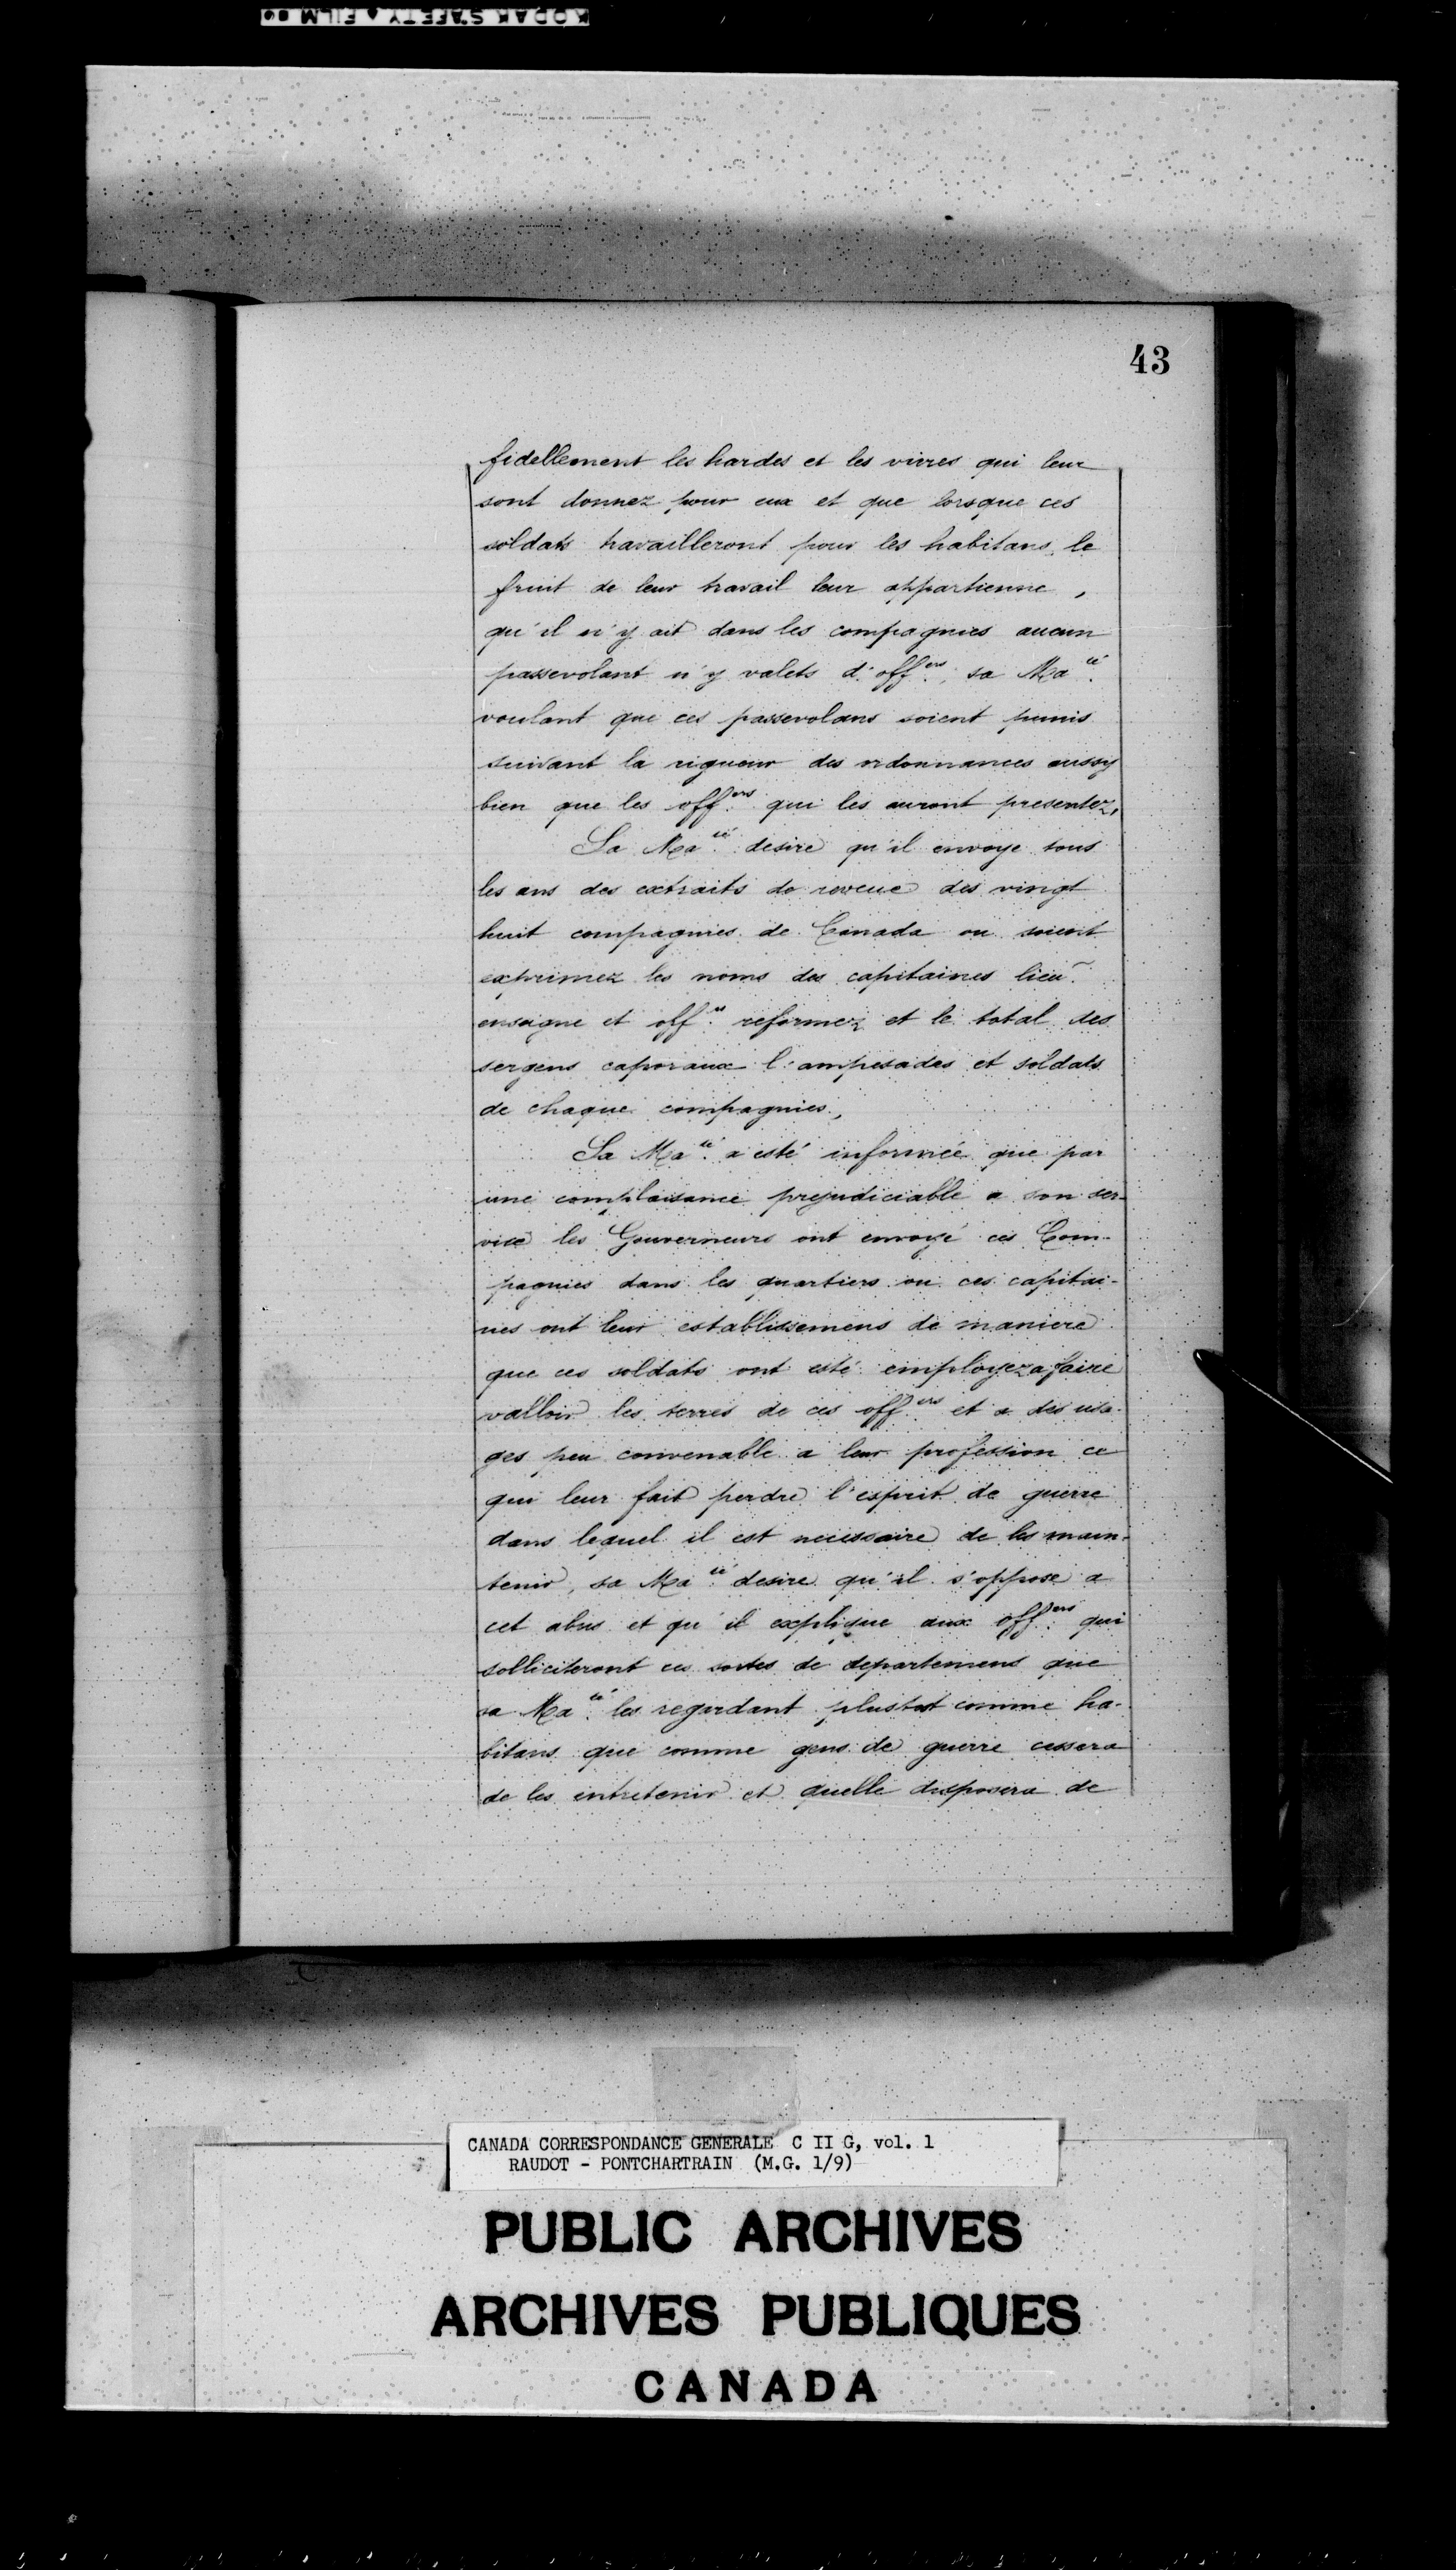 KODAK SAFETY FILM
43
fidellement les hardes et les vivres qui leur
sont donnez pour eux et que lorsque ces
soldats travailleront pour les habitans le
fruit de leur travail leur appartienne,
qu'il n'y ait dans les compagnies aucun
passevolant n'y valets d'off.ers, sa Ma.té
voulant que ces passevolans soient punis
suivant la rigueur des ordonnances aussy
bien que les off.ers qui les auront presentez,
Sa Ma.té desire qu'il envoye tous
les ans des extraits de reveue des vingt
huit compagnies de Canada ou soient
exprimez les noms des capitaines lieu.
enseigne et off.rs reformez et le total des
sergens caporaux l'ampesades et soldats
de chaque compagnies,
Sa Ma.té a esté informée que par
une complaisance prejudiciable a son ser-
vice les Gouverneurs ont envoyé ces Com-
pagnies dans les quartiers ou ces capitai-
nes ont leur establissemens de maniere
que ces soldats ont esté employez a faire
valloir les terres de ces off.ers et a des usa-
ges peu convenable a leur profession ce
qui leur fait perdre l'esprit de guerre
dans lequel il est necessaire de les main-
tenir, sa Ma.té desire qu'il s'oppose a
cet abus et qu'il explique aux off.ers qui
solliciteront ces sortes de departemens que
sa Ma.té les regardant plustost comme ha-
bitans que comme gens de guerre cessera
de les entretenir et quelle disposera de
CANADA CORRESPONDANCE GENERALE C II G, vol. 1
RAUDOT - PONTCHARTRAIN (M.G. 1/9)
PUBLIC ARCHIVES
ARCHIVES PUBLIQUES
CANADA